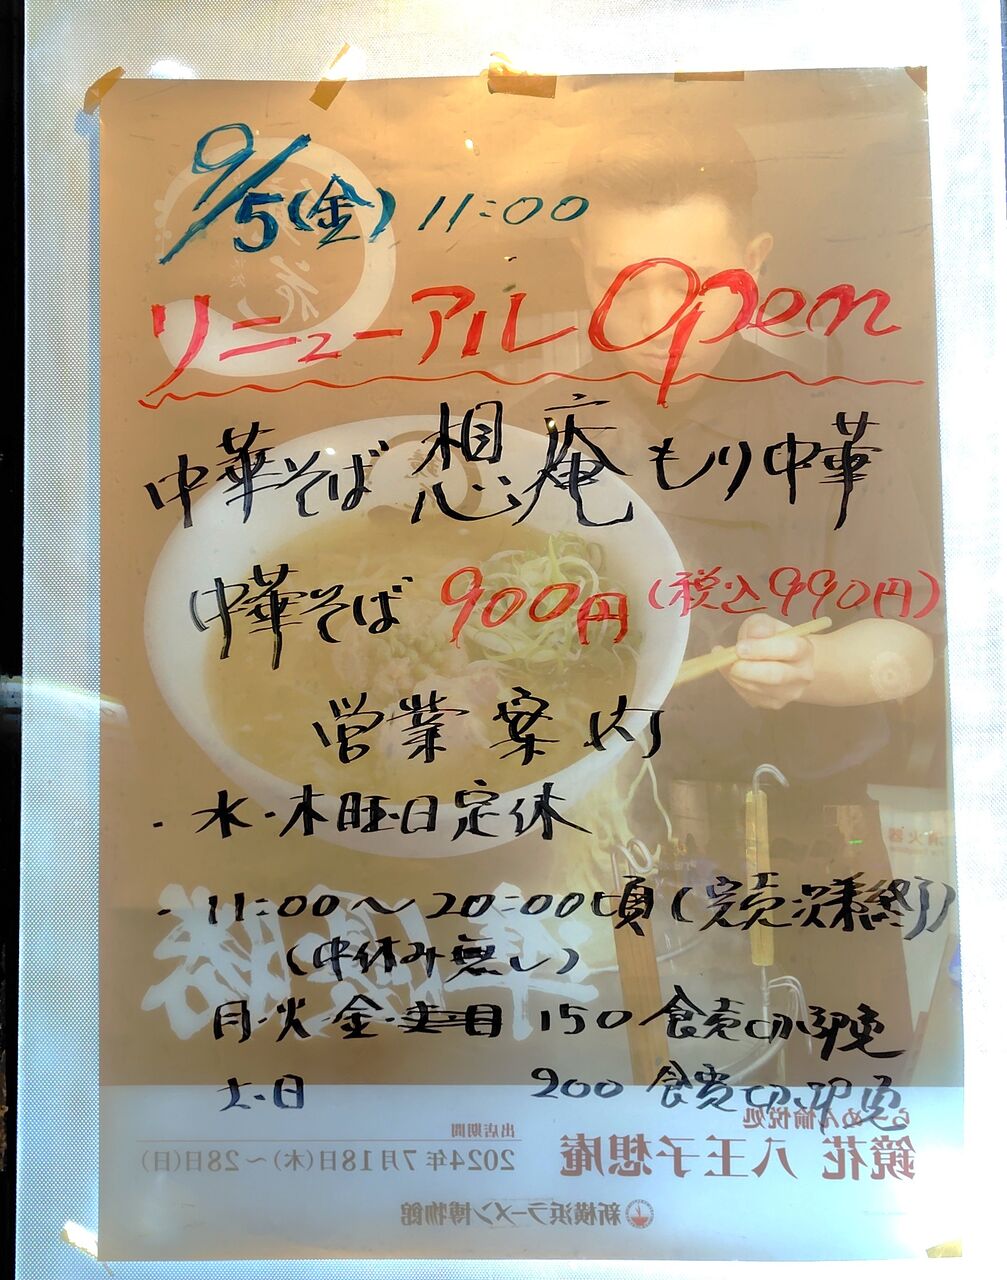 9/5(金) 11:00
リニューアル Open
中華そば 想庵 もり中華
中華そば 900円 (税込990円)
営業案内
・水・木曜日定休
・11:00〜20:00頃(完売次第終了)
(中休み無し)
月・火 金・ 150食売切御免
土・日 200食売切御免
らーめん愉悦処
鏡花 八王子想庵
出店期間
2024年7月18日(木)〜28日(日)
新横浜ラーメン博物館
準優勝
消火器